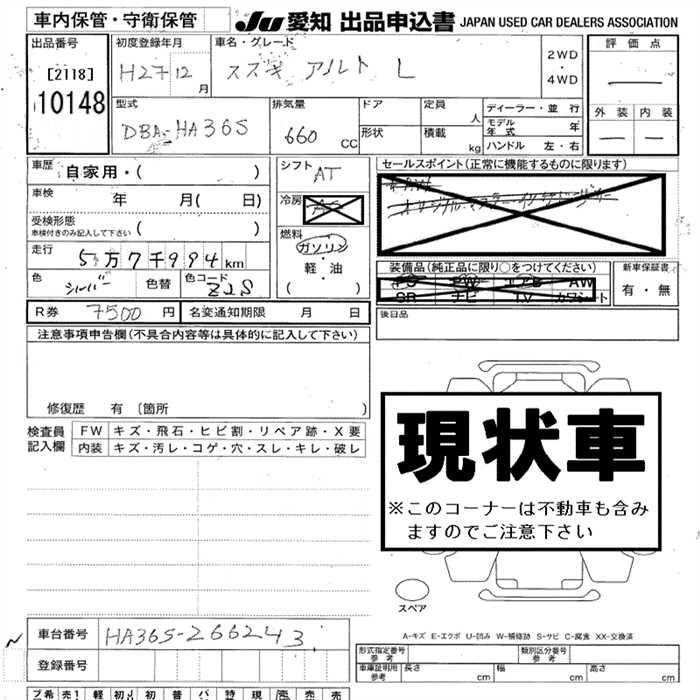 車内保管・守衛保管
JU 愛知 出品申込書 JAPAN USED CAR DEALERS ASSOCIATION
出品番号
[2118]
10148
初度登録年月
H27 12 月
車名・グレード
スズキ アルト L
2WD
・
4WD
評 価 点
外 装 内 装
型式
DBA-HA36S
排気量
660 CC
ドア
形状
定員 人
積載 kg
ディーラー・並 行
モデル年式 年
ハンドル 左・右
車歴 自家用・( )
車検 年 月( 日)
受検形態
車検付きのみ記入して下さい ( )
走行 5万7千994 km
色 シルバー 色替 色コード Z2S
シフト AT
冷房
燃料
ガソリン
・
軽・油
( )
セールスポイント(正常に機能するものに限ります)
装備品(純正品に限り○をつけてください)
PS PW エアB AW
SR ナビ TV カワシート
新車保証書
有・無
後日品
R券 7500 円
名変通知期限 月 日
注意事項申告欄(不具合内容等は具体的に記入して下さい)
修復歴 有 〔箇所 〕
検査員記入欄
FW キズ・飛石・ヒビ割・リペア跡・X要
内装 キズ・汚レ・コゲ・穴・スレ・キレ・破レ
現状車
※このコーナーは不動車も含み
ますのでご注意下さい
スペア
A-キズ E-エクボ U-凹み W-補修跡 S-サビ C-腐食 XX-交換済
車台番号 HA36S-266243
登録番号
形式指定番号 参考
類別区分番号 参考
車庫証明用 参考 長さ cm 幅 cm 高さ cm